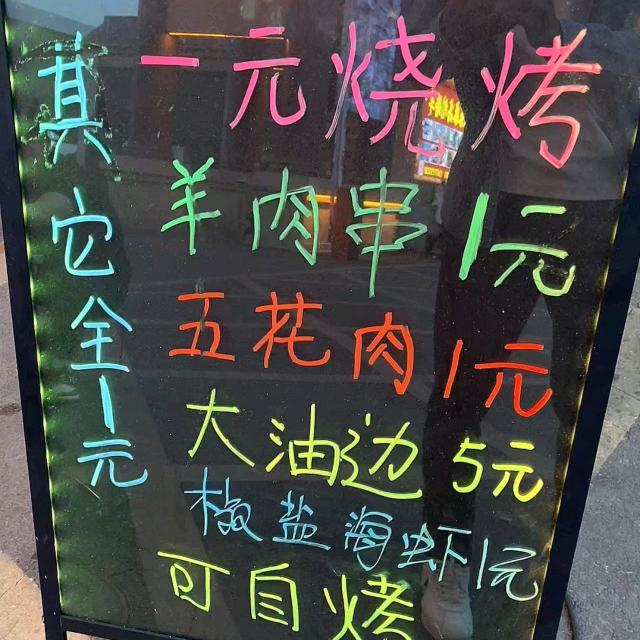 一元烧烤
羊肉串1元
五花肉1元
大油边5元
椒盐海虾1元
可自烤
其它全1元